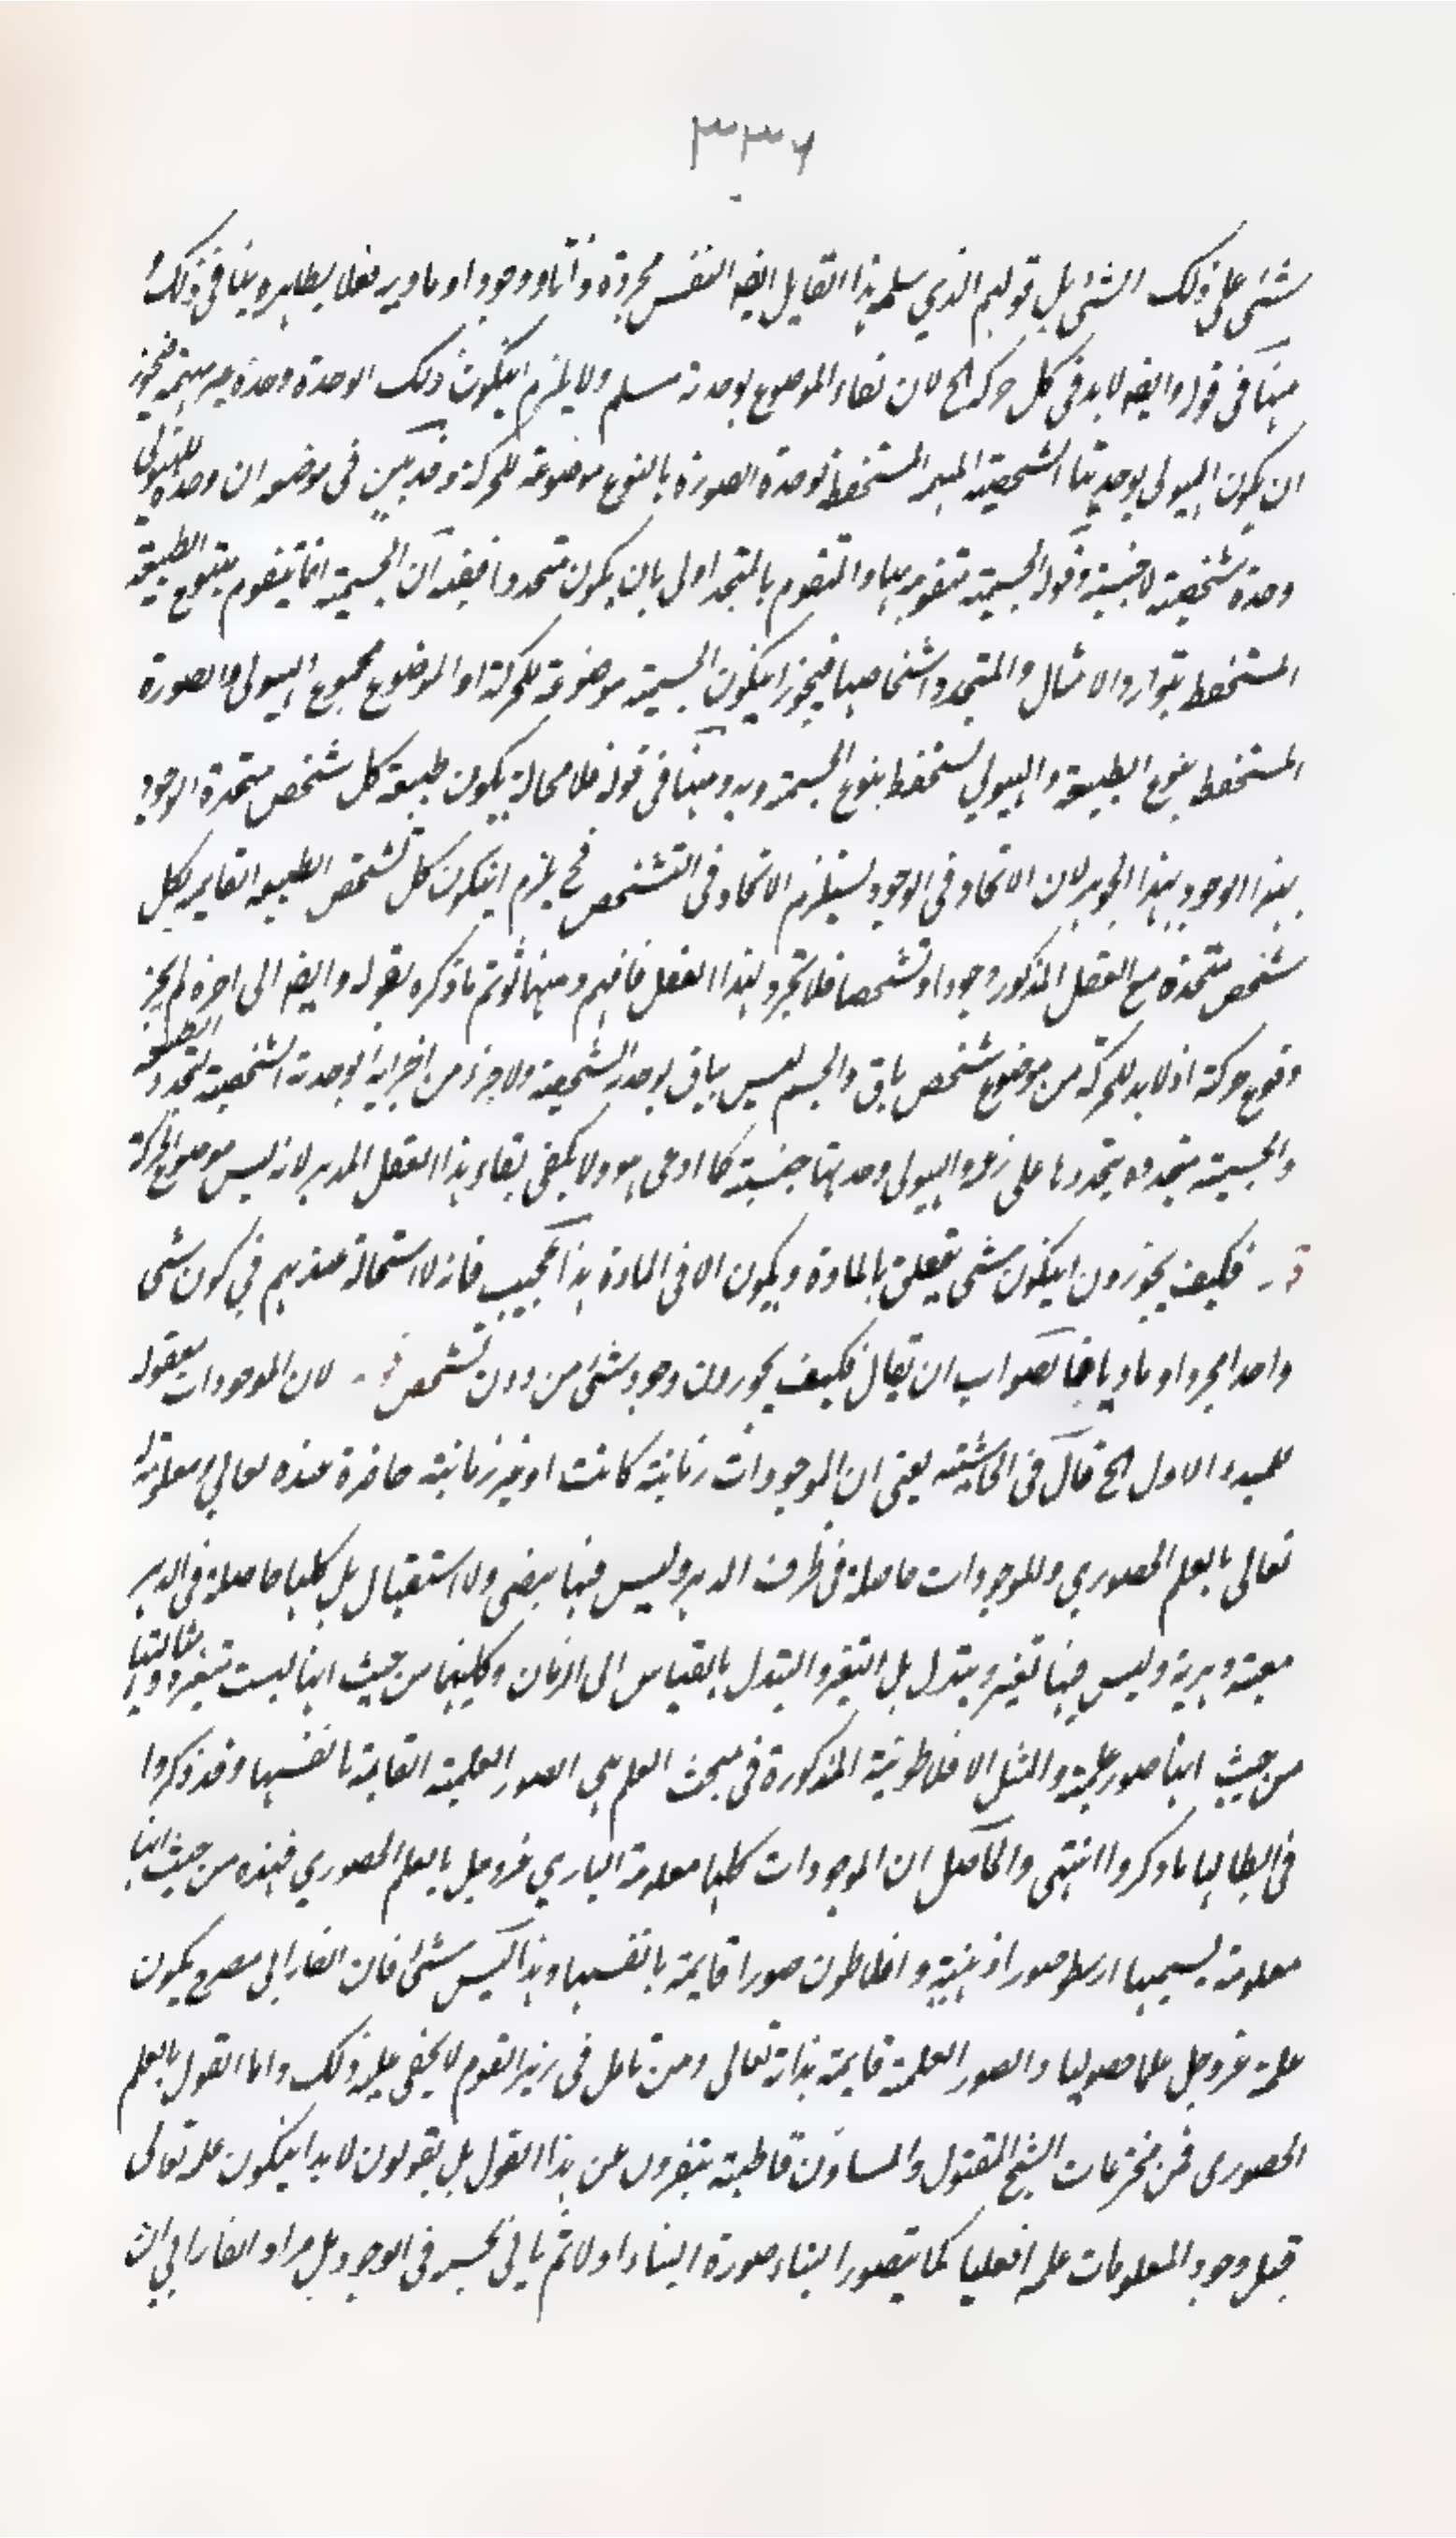 ٣٣٦
شئى على ذلك الشئ بل قولهم الذي سلمه هذا القايل ايضا النفس مجردة ذاتا ووجودا ومادية فعلا يطابره ينافى ذلك
منها فى قوله وايضا لابد فى كل حركة الخ لان بقاء الموضوع بوحدته مسلم ولا يلزم ايكون ذلك الوحدة وحدة غير مبهمة فيجوز
ان يكون الهيولى بوحدتها الشخصية المبهمة المستحفظ بوحدة الصورة بالنوع موضوعة للحركة وقد بين فى موضعه ان وحدة الهيولى
وحدة شخصية لا جنسية وقوله الجسمية متقومة بها والمتقوم بالمتجدد اولى بان يكون متجددا ففيه ان الجسمية انما يتقوم بنوع الطبيعة
المستحفظ بتوارد الامثال والمتجدد اشخاصها فيجوز ايكون الجسمية موضوعة للحركة او الموضوع مجموع الهيولى والصورة
المستحفظ بنوع الطبيعة والهيولى يستحفظ بنوع الجسمية ومنها فى قوله فلا محالة يكون طبيعة كل شخص متحدة الوجود
بهذا الوجود بهذا الجوهر لان الاتحاد فى الوجود يستلزم الاتحاد فى التشخص فح يلزم ايكون كل تشخص الطبيعة القايمة بكل
شخص متحدة مع العقل المذكور وجودا وتشخصا فلا تجرد لهذا العقل فافهم ومنها لو تم ما ذكره بقوله وايضا الى اخره لم يجز
وقوع حركة اذ لابد للحركة من موضوع شخص باق والجسم ليس بباق بوحدته الشخصية ولا جزء من اجزايه بوحدته الشخصية لتجدد الطبيعة
والجسمية متجددة بتجددها على زعمه والهيولى وحدتها جنسية كما ادعى هو ولا يكفى بقاء هذا العقل المدبر لانه ليس موضوع الحركة
قـ فكيف يجوزون ايكون شئى يتعلق بالمادة ويكون لا فى المادة هذا عجيب فانه لا استحالة عندهم فى كون شئى
واحد مجردا وماديا فالصواب ان يقال فكيف يجوزون وجود شئى من دون تشخص قـ لان الموجودات معقولة
للمبدء الاول الخ قال فى الحاشية يعنى ان الموجودات زمانية كانت او غير زمانية حاضرة عنده تعالى ومعلومة له
تعالى بالعلم الحضورى وللموجودات حاصلة فى ظرف الدهر وليس فيها مضى ولا استقبال بل كلها حاصلة فى الدهر
معية دهرية وليس فيها تغير وتبدل بل التغير والتبدل بالقياس الى الزمان وكليتها من حيث انها ليست متغيرة
من حيث انها صور علمية والمثل الافلاطونية المذكورة فى مبحث العلم هى الصور العلمية القايمة بانفسها وقد ذكروا
فى ابطالها ما ذكروا انتهى والحاصل ان الموجودات كلها معلومة البارى عز وجل بالعلم الحضورى فهذه من حيث انها
معلومة يسميها ارسطو صورا ذهنية وافلاطون صورا قايمة بانفسها وهذا ليس شئ فان الفارابى مصرح بكون
علمه عز وجل علما حصوليا والصور العلمية قايمة بذاته تعالى ومن تامل فى زبر القوم لا يخفى عليه ذلك واما القول بالعلم
الحضورى فمن مخترعات الشيخ المقتول والمشاؤن قاطبة يتبرون عن هذا القول بل يقولون لابد ايكون علمه تعالى
قبل وجود المعلومات علما فعليا كما يتصور البناء صورة البناء اولا ثم ياتى بحسبه فى الوجود بل مراد الفارابى ان